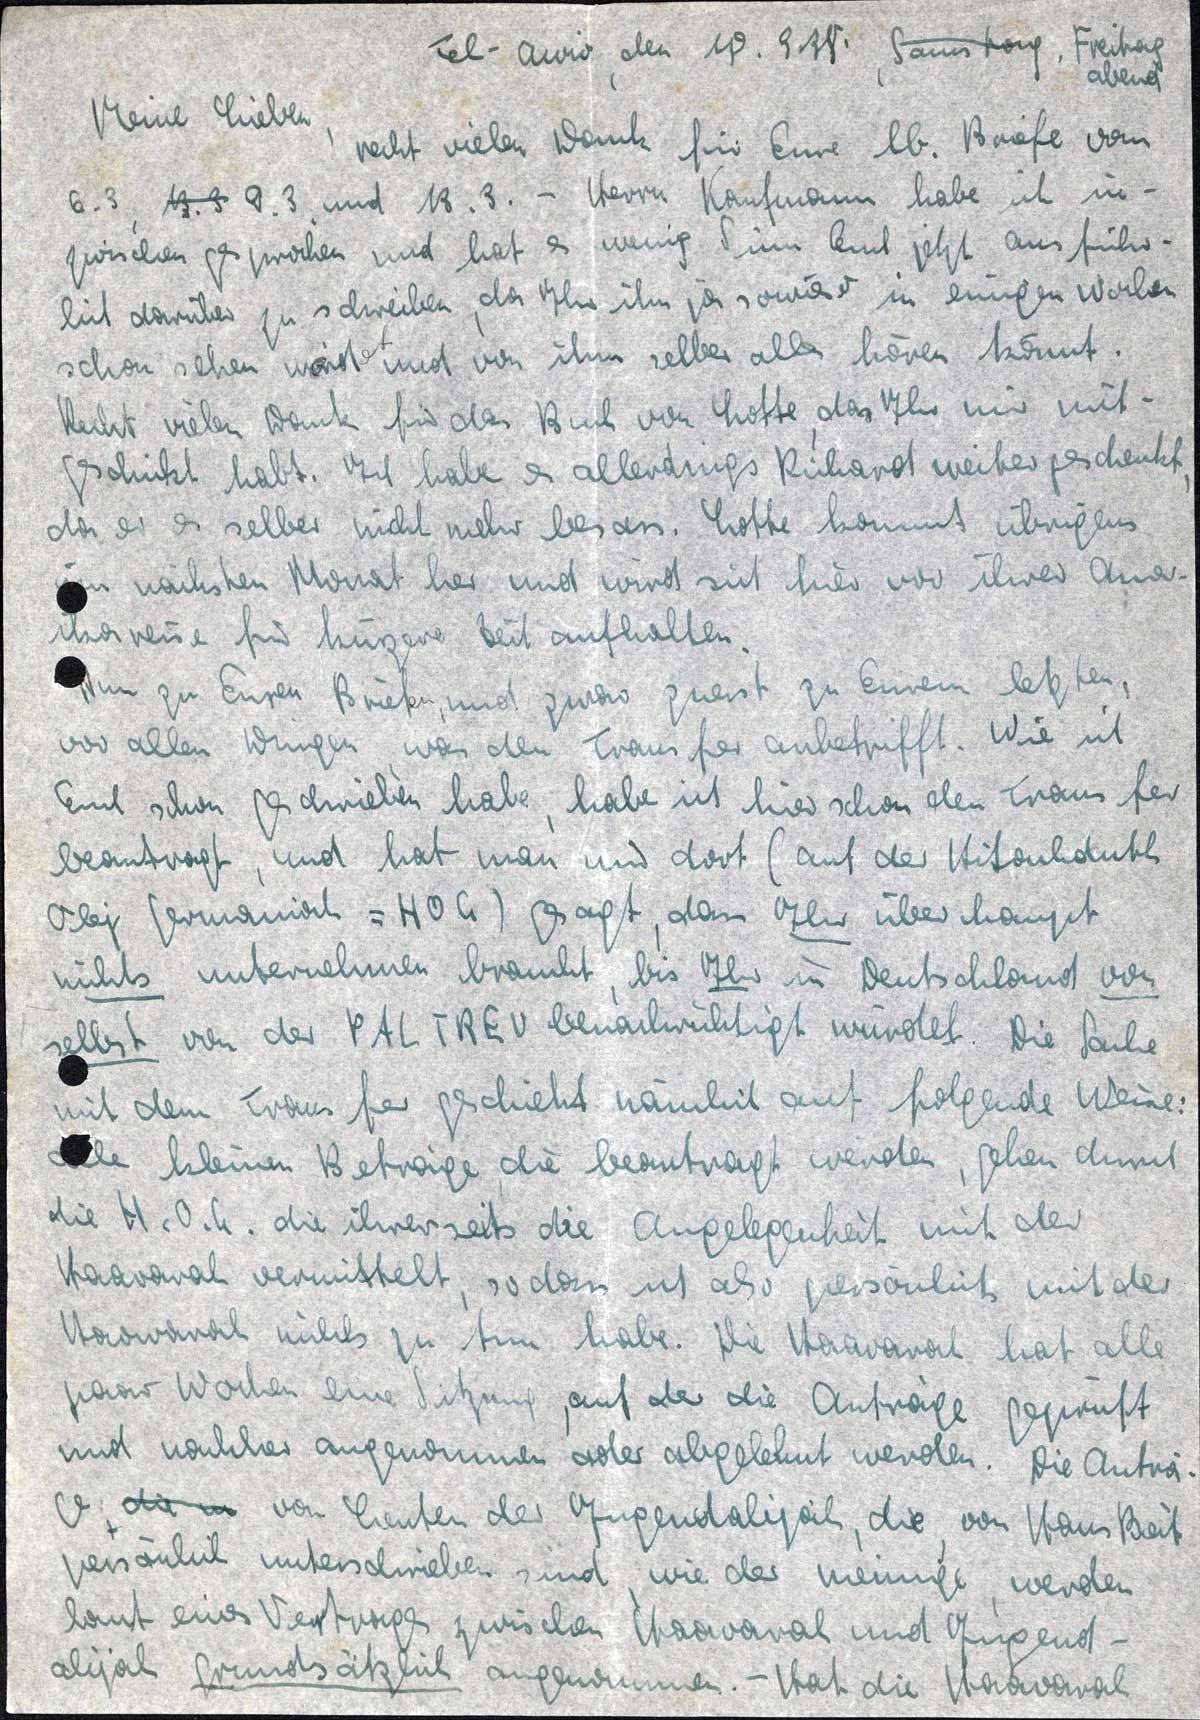 Tel-Awiw, den 19. 3. 38. , Samstag, Freitag
abend
Meine Lieben,
recht vielen Dank für Eure lb. Briefe vom
6.3, 13.3 8.3, und 13.3. - Herrn Kaufmann habe ich in-
zwischen gesprochen und hat es wenig Sinn Euch jetzt ausführ-
lich darüber zu schreiben, da Ihr ihn ja sowieso in einigen Wochen
schon sehen werdet und von ihm selber alles hören könnt.
Recht vielen Dank für das Buch von Lotte, das Ihr mir mit-
geschickt habt. Ich habe es allerdings Richard weitergeschenkt,
da er es selber nicht mehr besass. Lotte kommt übrigens
im nächsten Monat her und wird sich hier vor ihrer Ame-
rikareise für kürzere Zeit aufhalten.
Nun zu Euren Briefen, und zwar zuerst zu Eurem letzten,
vor allen Dingen, was den Transfer anbetrifft. Wie ich
Euch schon geschrieben habe, habe ich hier schon den Transfer
beantragt, und hat man mir dort (auf der Hitachduth
Olej Germaniah = HOG) gesagt, dass Ihr überhaupt
nichts unternehmen braucht, bis Ihr in Deutschland von
selbst von der PALTREU benachrichtigt würdet. Die Sache
mit dem Transfer geschieht nämlich auf folgende Weise:
alle kleinen Beträge, die beantragt werden, gehen durch
die H.O.G. die ihrerseits die Angelegenheit mit der
Haavarah vermittelt, so dass ich also persönlich mit der
Haavarah nichts zu tun habe. Die Haavarah hat alle
paar Wochen eine Sitzung, auf der die Anträge geprüft
und nachher angenommen oder abgelehnt werden. Die Anträ-
ge, die von Leuten der Jugendalijah, die von Hans Beit
persönlich unterschrieben sind, wie der meinige, werden
laut eines Vertrages zwischen Haavarah und Jugend-
alijah grundsätzlich angenommen. - Hat die Haavarah